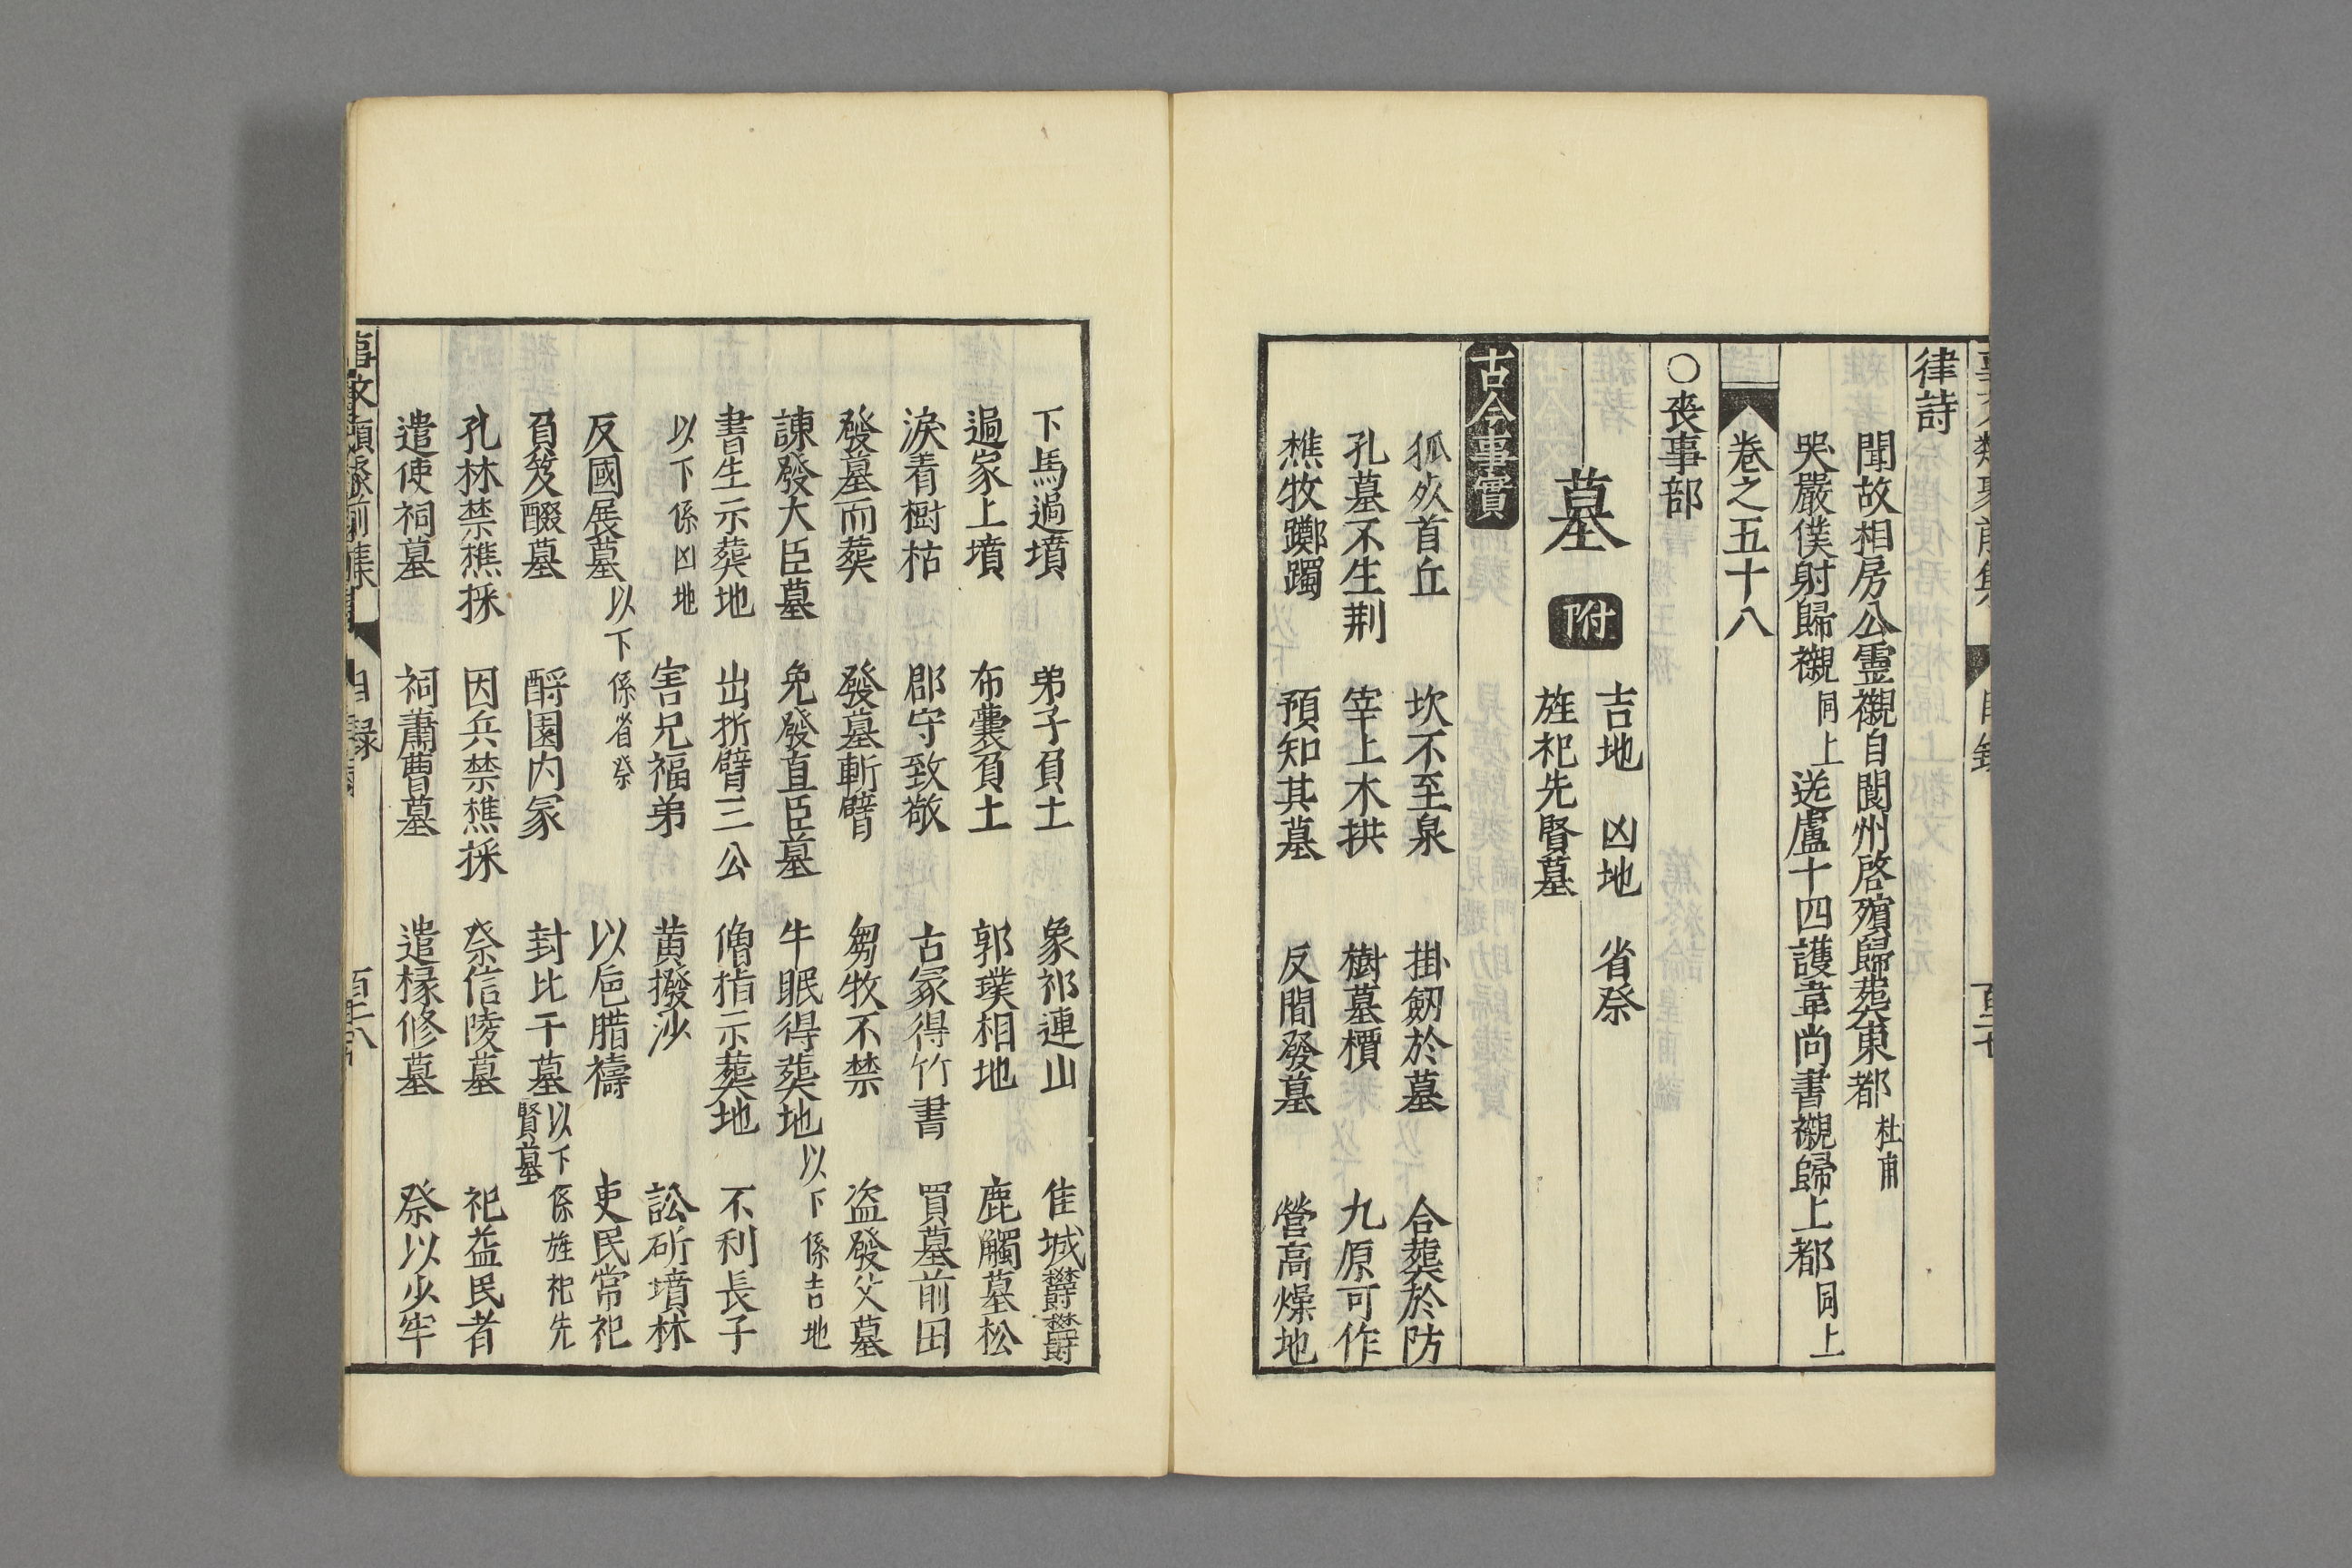 律詩
聞故相房公靈櫬自閬州啓殯歸葬東都 杜甫
哭嚴僕射歸櫬 同上 送盧十四護韋尚書櫬歸上都 同上
卷之五十八
○喪事部
墓 附 吉地 凶地 省祭
旌祀先賢墓
古今事實
狐死首丘 坎不至泉 掛劒於墓 合葬於防
孔墓不生荆 宰上木拱 樹墓檟 九原可作
樵牧躑躅 預知其墓 反間發墓 營高燥地
下馬過墳 弟子負土 象祁連山 佳城欝欝
過家上墳 布囊負土 郭璞相地 鹿觸墓松
淚着樹枯 郡守致敬 古冢得竹書 買墓前田
發墓而葬 發墓斬臂 芻牧不禁 盗發父墓
諌發大臣墓 免發直臣墓 牛眠得葬地 以下係吉地
書生示葬地 出折臂三公 僧指示葬地 不利長子
以下係凶地 害兄福弟 黄撥沙 訟斫墳林
反國展墓 以下係省祭 以巵腊禱 吏民常祀
負笈醊墓 酹園内冢 封比干墓 以下係旌祀先賢墓
孔林禁樵採 因兵禁樵採 祭信陵墓 祀益民者
遣使祠墓 祠蕭曹墓 遣掾修墓 祭以少牢
事文類聚前集 目録